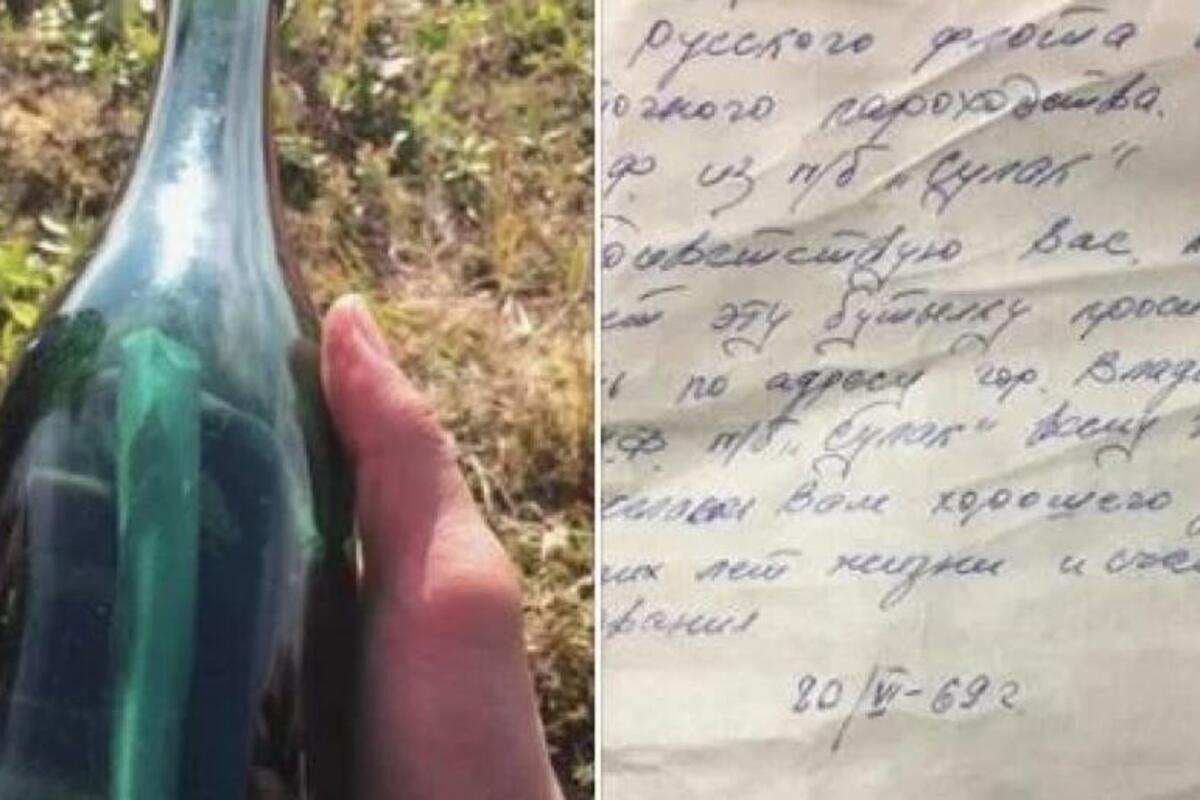 Русского флота
точного пароходства.
Ф. из т/б "Сулак"
Приветствую Вас,
эту бутылку
по адресу гор. Влад
Ф. т/б "Сулак"
Вам хорошего
лет жизни и счас
ования
20/VI-69 г